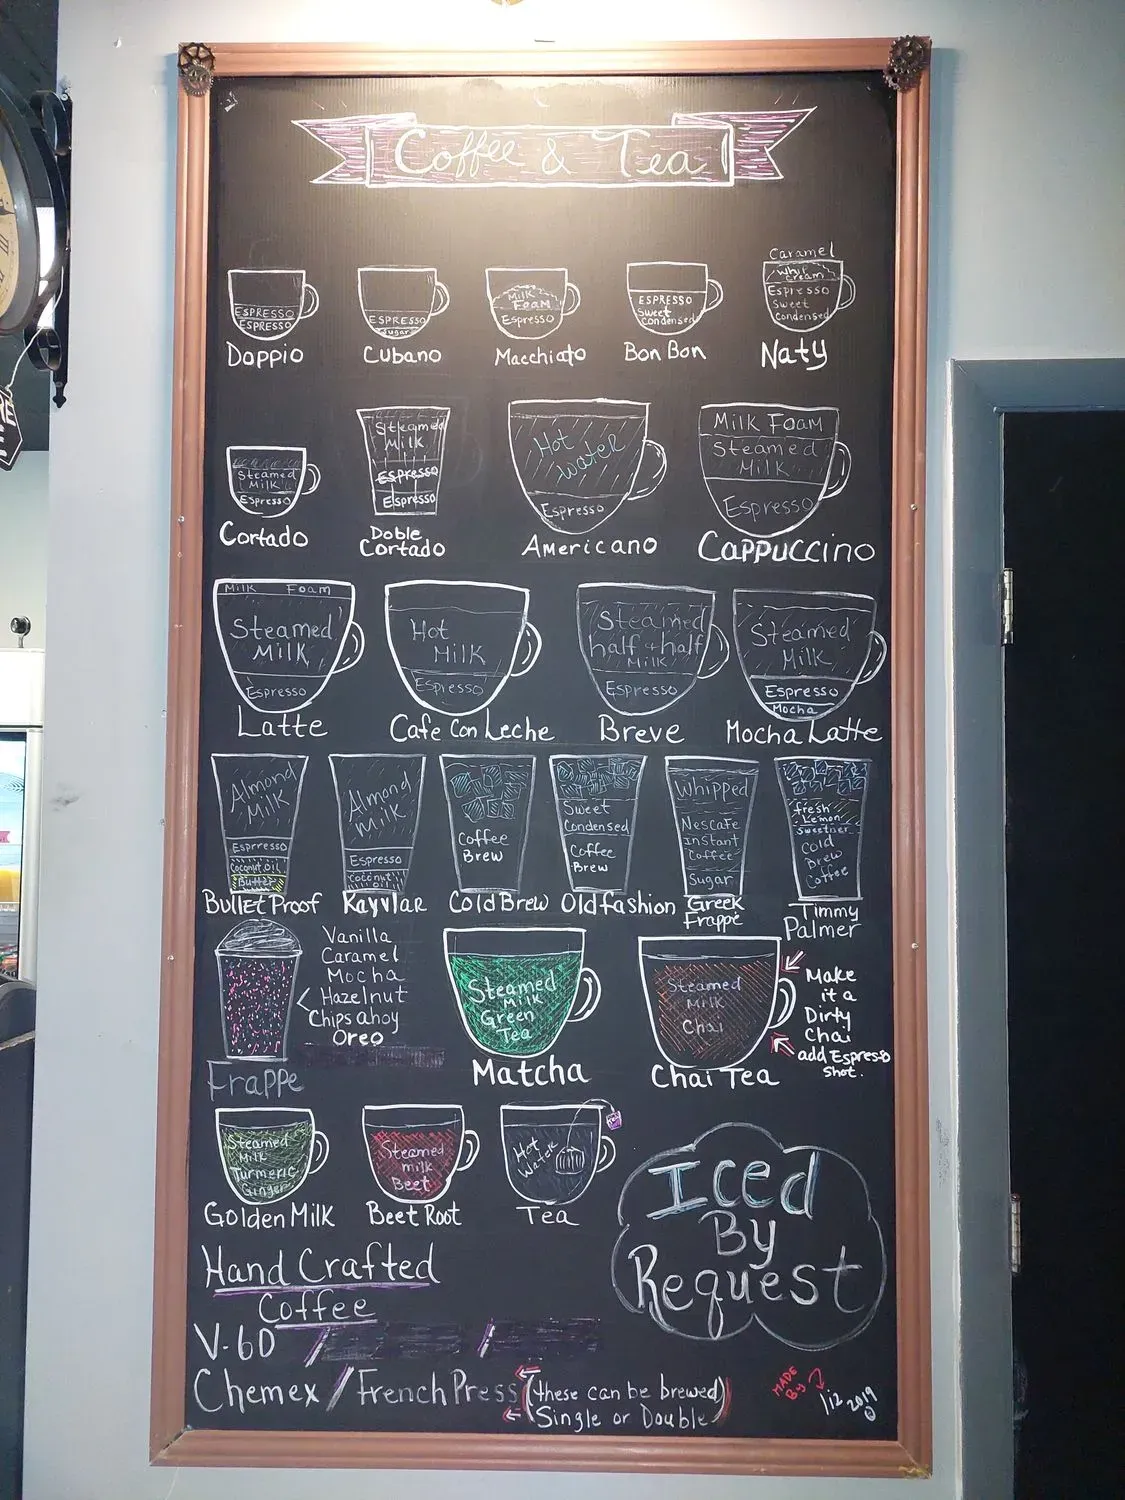 Coffee & Tea
ESPRESSO
ESPRESSO
Doppio
ESPRESSO
Sugar
Cubano
Milk
Foam
Espresso
Macchiato
ESPRESSO
Sweet
Condensed
Bon Bon
Caramel
Whip
Cream
Espresso
Sweet
Condensed
Naty
Steamed
Milk
Espresso
Cortado
Steamed
Milk
Espresso
Espresso
Doble
Cortado
Hot
Water
Espresso
Americano
Milk Foam
Steamed
Milk
Espresso
Cappuccino
Milk Foam
Steamed
Milk
Espresso
Latte
Hot
Milk
Espresso
Cafe Con Leche
Steamed
half + half
Milk
Espresso
Breve
Steamed
Milk
Espresso
Mocha
Mocha Latte
Almond
Milk
Esprresso
Coconut Oil
Butter
Bullet Proof
Almond
Milk
Espresso
Coconut
Oil
Kayvlar
Coffee
Brew
Cold Brew
Sweet
Condensed
Coffee
Brew
Old fashion
Whipped
Nescafe
Instant
Coffee
Sugar
Greek
Frappe
fresh
Lemon
Sweetner
Cold
Brew
Coffee
Timmy
Palmer
Vanilla
Caramel
Mocha
Hazelnut
Chips ahoy
Oreo
Frappe
Steamed
Milk
Green
Tea
Matcha
Steamed
Milk
Chai
Chai Tea
Make
it a
Dirty
Chai
add Espresso
Shot.
Steamed
Milk
Turmeric
Ginger
Golden Milk
Steamed
milk
Beet
Beet Root
Hot
Water
Tea
Iced
By
Request
Hand Crafted
Coffee
V-60 /
Chemex / French Press (these can be brewed)
Single or Double
MADE
By
liz 2019